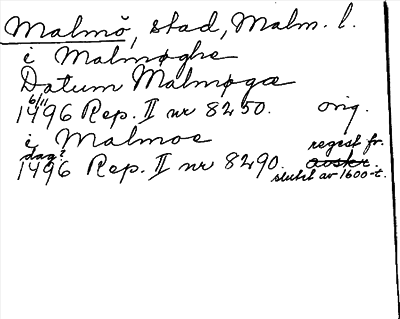 Malmö, stad, Malm. l.
i Malmøghe
Datum Malmøgæ
6/11
1496 Rep. II nr 8250. orig.
i Malmoe regest fr.
dag?
1496 Rep. II nr 8290. avskr.
slutet av 1600-t.